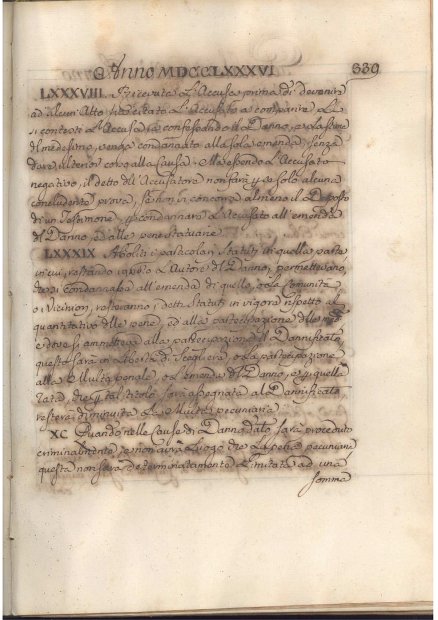 Anno MDCCLXXXVI 339
LXXXVIII. Ricevuta L'Accusa, prima di devenire
ad alcun Atto sia citato L'Accusato a comparire, e Li
si contesti L'Accusa, e confessando il Danno, e
il medesimo, venga condannato alla sola emenda, senza
dare ulterior corso alla Causa. Ma essendo L'Accusato
negativo, il detto dell'Accusatore non farà per se solo alcuna
concludente prova, se non in concorso almeno il Deposto
di un Testimone, per condannare L'Accusato all'emenda
del Danno, ed alle pene Statuarie.
LXXXIX. Aboliti i particolari Statuti in quella parte
in cui, restando ignoto L'Autore del Danno, permettevano,
che si condannasse all'emenda di quello, o la Comunità
o i Vicini, resteranno i detti Statuti in vigore rispetto al
quantitativo delle pene, ed alla partecipazione delle
e dove si ammetteva alla partecipazione il Dannificato,
questo sarà in Libertà di Scegliere, o La partecipazione
alla Multa penale, o L'emenda del Danno, e per quella
rata, che a tal titolo sarà assegnata al Dannificato
resterà diminuita La Multa pecuniaria
XC. Quando nelle Cause di Danno dato sarà proceduto
criminalmente, e non avrà Luogo che La pena pecuniaria
questa non sarà determinatamente Limitata ad una
somma